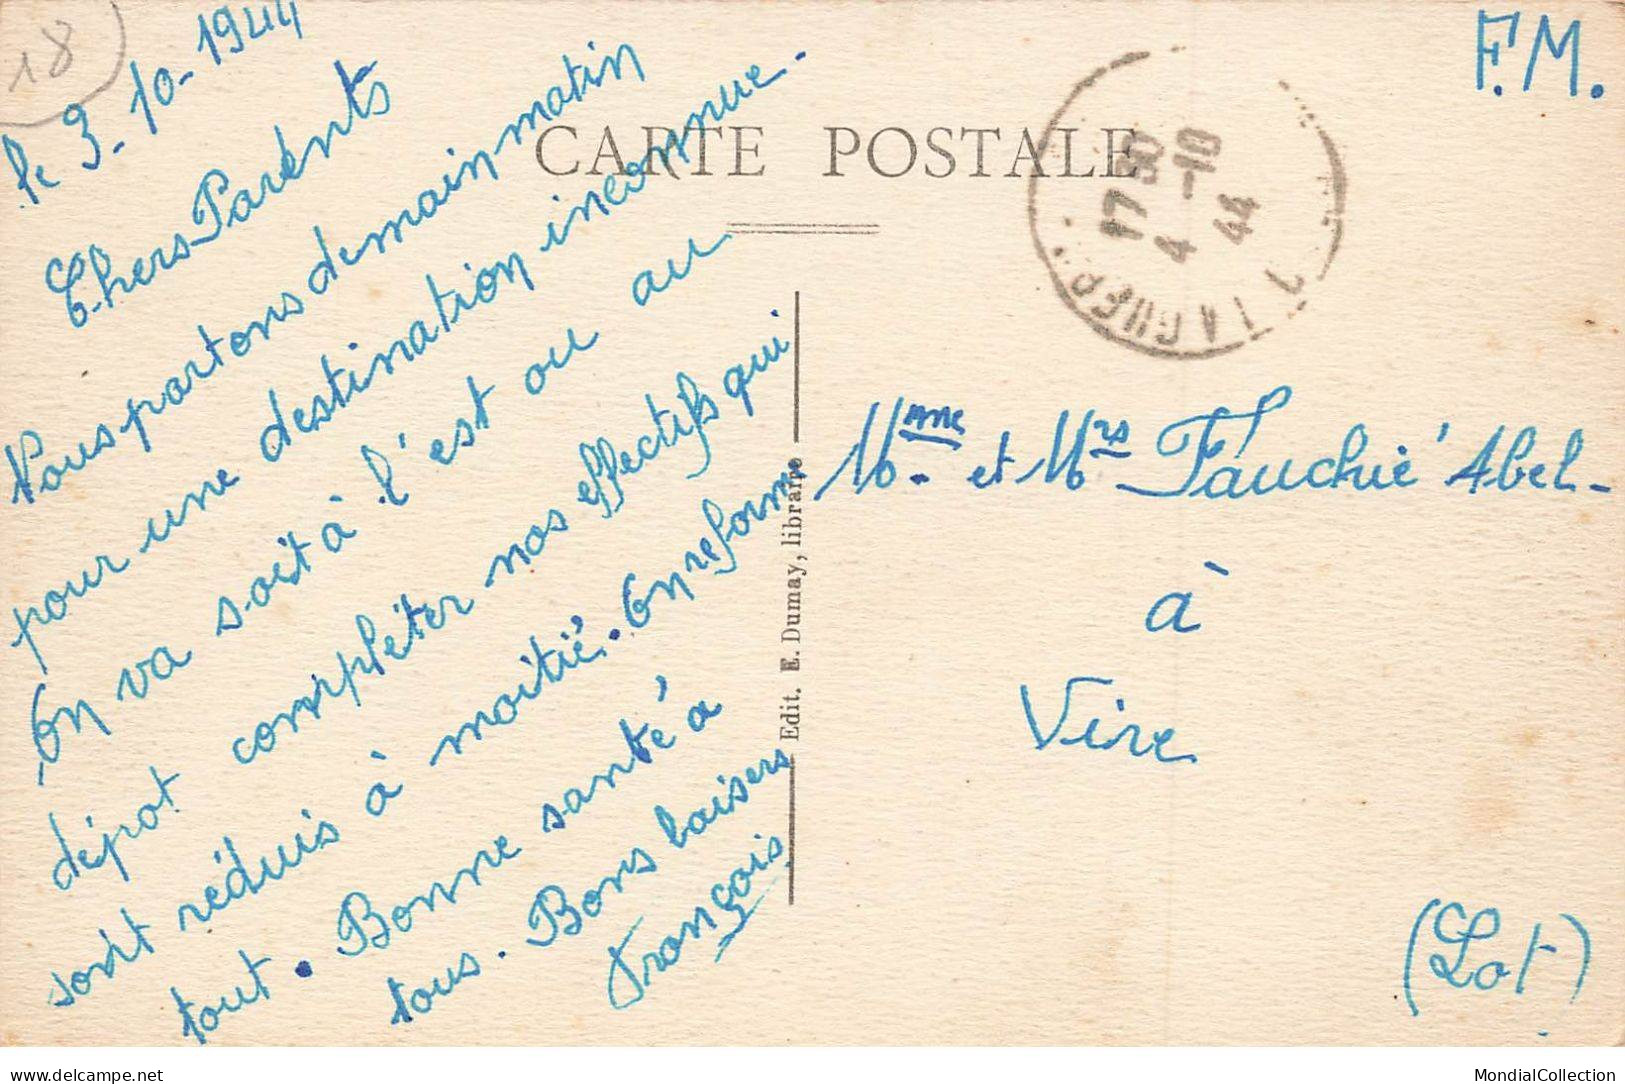 18
le 3-10-1944
Chers Parents
Nous partons demain matin
pour une destination inconnue.
On va soit à l'est ou au
dépot compléter nos effectifs qui
sont réduis à moitié. On reforme
tout. Bonne santé à
tous. Bons baisers
François.
CARTE POSTALE
F.M.
17 30
4 -10
44
Edit. E. Dumay, libraire
Mme. et Mrs Fauchié Abel-
à
Vire
(Lot)
delcampe.net
MondialCollection